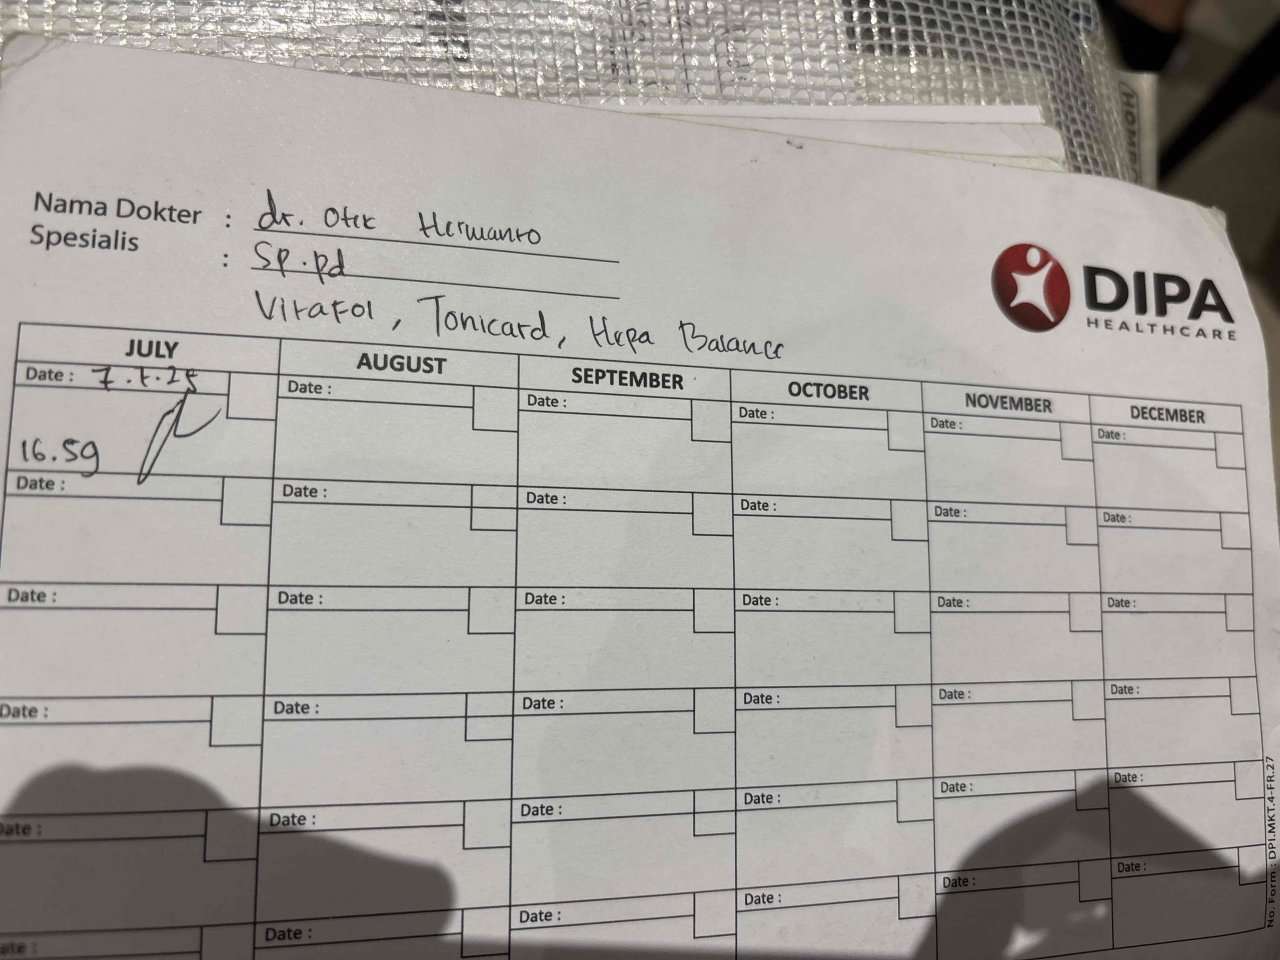 Nama Dokter : dr. Otek Hermanto
Spesialis : Sp.pd
Vitafol, Tonicard, Hepa Balance
DIPA
HEALTHCARE
JULY AUGUST SEPTEMBER OCTOBER NOVEMBER DECEMBER
Date : 7.7.25 Date : Date : Date : Date : Date :
16.59
Date : Date : Date : Date : Date : Date :
Date : Date : Date : Date : Date : Date :
Date : Date : Date : Date : Date : Date :
Date : Date : Date : Date : Date : Date :
Date : Date : Date : Date : Date : Date :
No. Form : DPI.MKT.4-FR.27